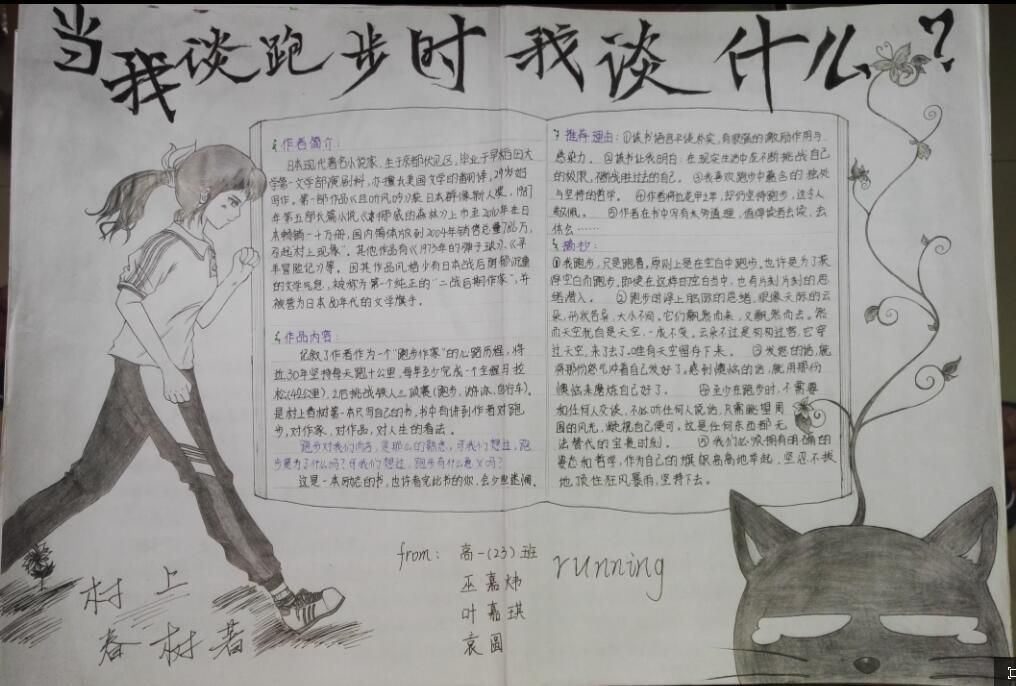 当我谈跑步时我谈什么？
作者简介：
日本现代著名小说家，生于京都伏见区，毕业于早稻田大
学第一文学部演剧科，亦擅长美国文学的翻译，29岁开始
写作。第一部作品《且听风吟》获日本群像新人奖，1987
年第五部长篇小说《挪威的森林》上市至2010年在日
本畅销一千万册，国内简体版到2004年销售总量786万，
引起“村上现象”。其他作品有《1973年的弹子球》、《寻
羊冒险记》等。因其作品风格少有日本战后阴郁沉重
的文学气息，被称为第一个纯正的“二战后期作家”，并
被誉为日本80年代的文学旗手。
作品内容：
忆叙了作者作为一个“跑步作家”的心路历程，将
近30年坚持每天跑十公里，每年至少完成一个全程马拉
松(42公里)，之后挑战铁人三项赛(跑步，游泳，自行车)。
是村上春树第一本只写自己的书，书中有讲到作者对跑
步，对作家，对作品，对人生的看法。
跑步对我们而言，是那么的熟悉，可我们想过，跑
步是为了什么吗？可我们想过，跑步有什么意义吗？
这是一本励志的书，也许看完此书的你，会少些迷惘。
推荐理由：①该书语言平淡朴实，有很强的激励作用与
感染力。②该书让我明白：在现实生活中应不断挑战自己
的极限，不断战胜过去的自己。③我喜欢跑步中蕴含的独处
与坚持的哲学。④作者即近花甲之年，却仍坚持跑步，这令人
敬佩。⑤作者在书中写有大势道理，值得读者去读，去
体会……
摘抄：
①我跑步，只是跑着，原则上是在空白中跑步。也许是为了获
得空白而跑步。即使在这样的空白当中，也有片刻片刻的思
绪潜入。②跑步时浮上脑际的思绪，很像天际的云
朵，形状各异，大小不同。它们飘然而来，又飘然而去。然
而天空犹自是天空，一成不变。云朵不过是匆匆过客，它穿
过天空，来了去了。唯有天空留存下来。③发怒的话，就
将那份怒气冲着自己发好了，感到懊恼的话，就用那份
懊恼来磨炼自己好了。④至少在跑步时，不需要
和任何人交谈，不必听任何人说话，只需眺望周
围的风光，凝视自己便可，这是任何东西都无
法替代的宝贵时刻。⑤我们必须拥有明确的
姿态和哲学，作为自己的旗帜高高地举起，坚忍不拔
地顶住狂风暴雨，坚持下去。
from：高一(23)班
巫嘉炜
叶嘉琪
袁圆
running
村上
春树著